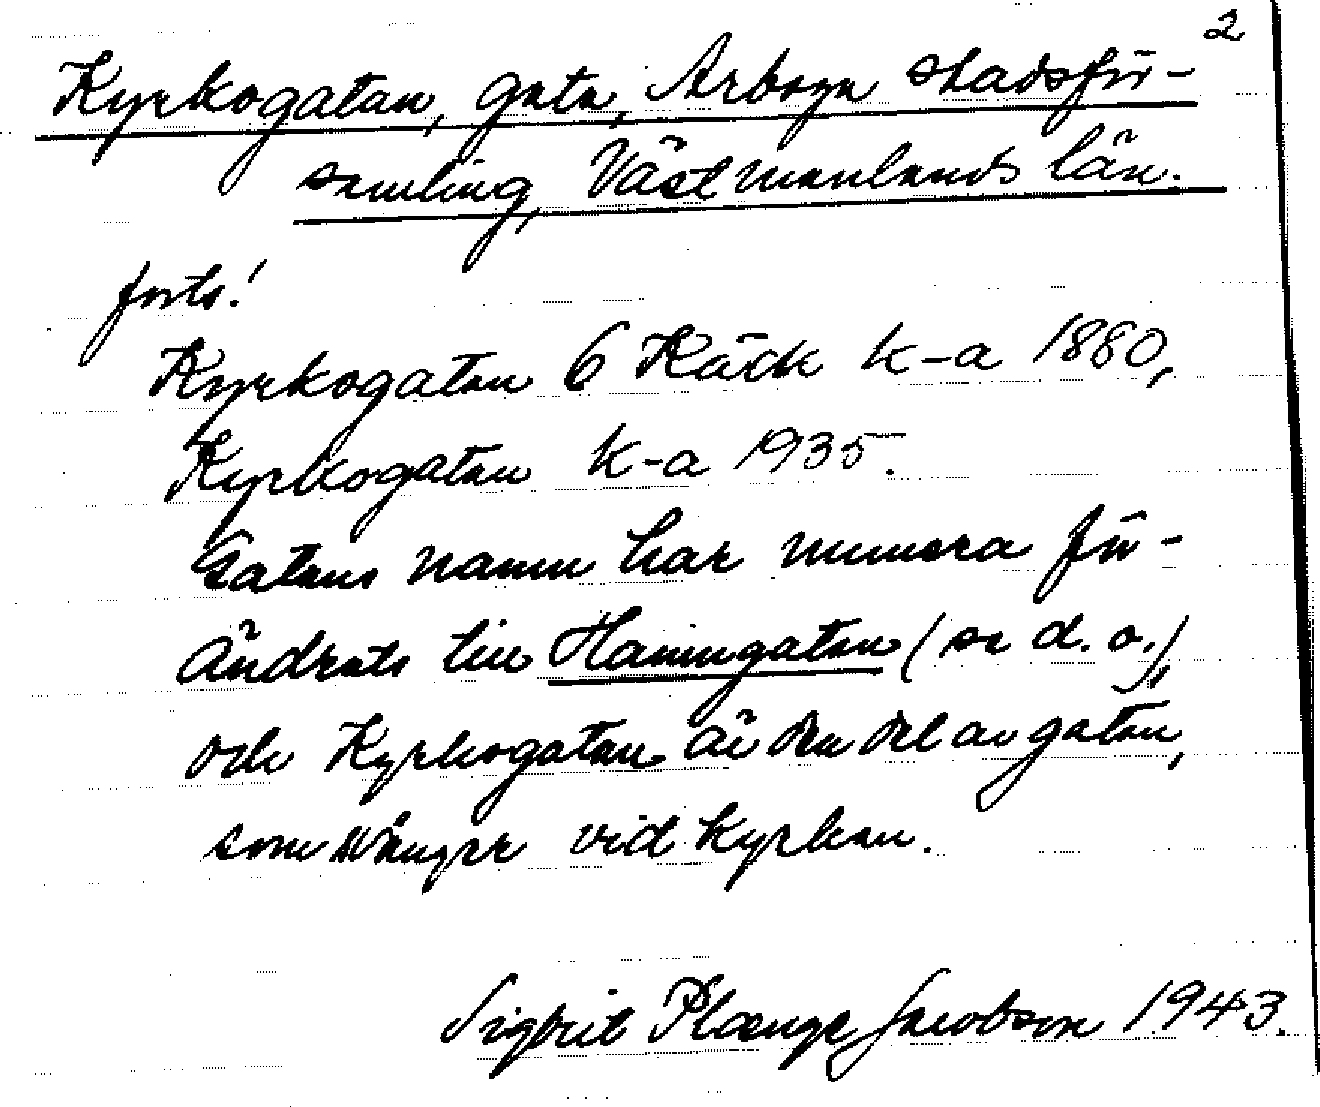 2
Kyrkogatan, gata, Arboga stadsför-
samling, Västmanlands län.
forts!
Kyrkogatan 6 Käck k-a 1880,
Kyrkogatan k-a 1935.
Gatans namn har numera för-
ändrats till Hamngatan (se d.o.),
och Kyrkogatan är den del av gatan,
som svänger vid kyrkan.
Sigbrit Plænge Jacobson 1943.